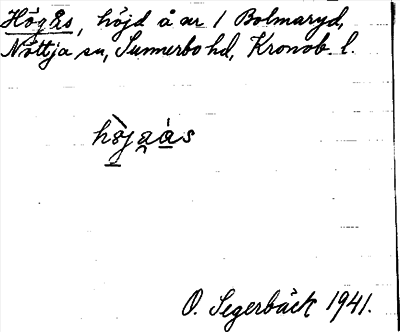 Högås, höjd å ar 1 Bolmaryd,
Nöttja sn, Sunnerbo hd, Kronob. l.
O. Segerbäck 1941.